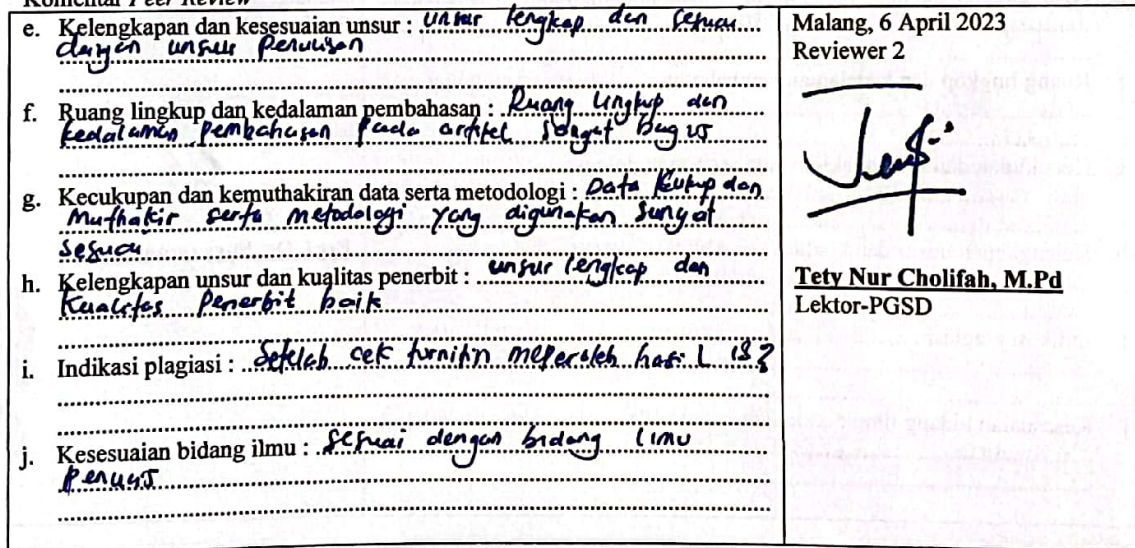 Komentar Peer Review
e. Kelengkapan dan kesesuaian unsur : unsur lengkap dan sesuai
dengan unsur penulisan
f. Ruang lingkup dan kedalaman pembahasan : Ruang lingkup dan
kedalaman pembahasan pada artikel sangat bagus
g. Kecukupan dan kemuthakiran data serta metodologi : Data cukup dan
muthakir serta metodologi yang digunakan sangat
sesuai
h. Kelengkapan unsur dan kualitas penerbit : unsur lengkap dan
kualitas penerbit baik
i. Indikasi plagiasi : Setelah cek turnitin meperoleh hasil 18%
j. Kesesuaian bidang ilmu : sesuai dengan bidang ilmu
penulis
Malang, 6 April 2023
Reviewer 2
Tety Nur Cholifah, M.Pd
Lektor-PGSD